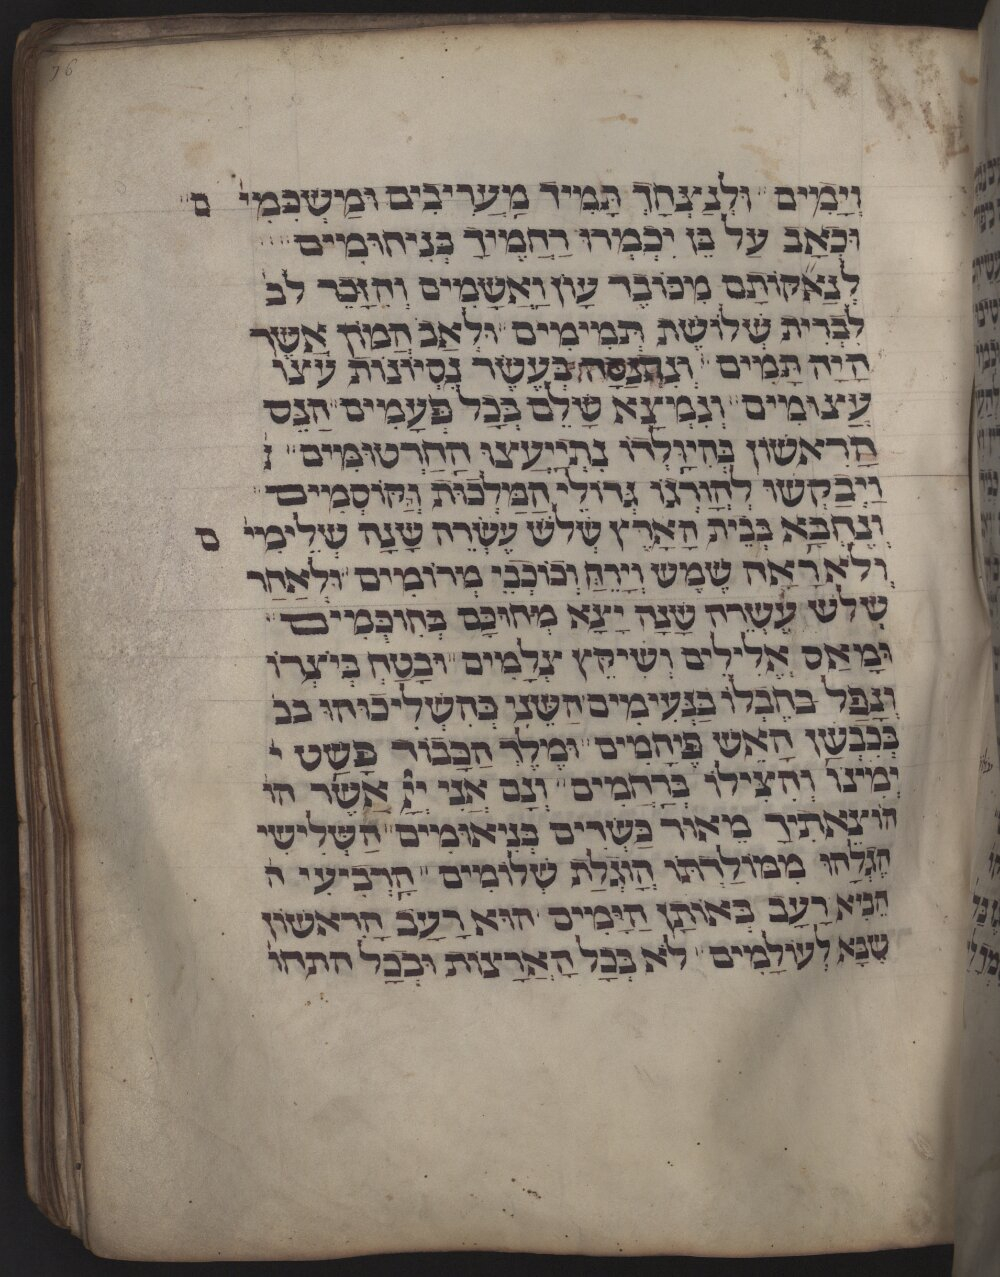 76
וְיָמִים וּלְנַצְחָךְ תָּמִיד מַעֲרִיבִים וּמַשְׁכִּמִי ם
וּכְאָב עַל בֵּן יִכְמְרוּ רַחֲמֶיךָ כְּנִיחוּמִים
לְנַאֲקוֹתָם מִכּוֹבֶד עָוֹן וַאֲשָׁמִים וְהִזָּכֵר לב
לִבְרִית שְׁלוֹשֶׁת תְּמִימִים וּלְאַב הֲמוֹן אֲשֶׁר
הָיָה תָּמִים וְנִתְנַסָּה בַּעֲשָׂר נִסְיוֹנוֹת עצו
עֲצוּמִים וְנִמְצָא שָׁלֵם בְּכָל פְּעָמִים הַנֵּס
הָרִאשׁוֹן בְּהִיוָּלְדוֹ נִתְיַיעֲצוּ הַחַרְטוּמִּים ו
וַיְבַקְשׁוּ לְהוֹרְגוֹ גְדוֹלֵי הַמַּלְכוּת וְקוֹסְמִים
וְנֶחְבָּא בְּבֵית הָאָרֶץ שְׁלֹשׁ עֶשְׂרֵה שָׁנָה שְׁלֵימִי ם
וְלֹא רָאָה שֶׁמֶשׁ וְיָרֵחַ וְכוֹכְבֵי מְרוֹמִים וּלְאַחַר
שְׁלֹשׁ עֶשְׂרֵה שָׁנָה יָצָא מְחוּכָּם בְּחוּכְּמִים
וּמָאַס אֱלִילִים וְשִׁיקֵּץ צְלָמִים וּבָטַח בְּיוֹצְרוֹ
וְנָפַל בְּחֶבְלוֹ בַּנְּעִימִים הַשֵּׁנִי בְּהִשְׁלִיכוּהוּ בכ
בְּכִבְשַׁן הָאֵשׁ פֶּיחָמִים וּמֶלֶךְ הַכָּבוֹד פָּשַׁט י
יְמִינוֹ וְהִצִּילוֹ בְּרַחֲמִים וְנָם אֲנִי יְיָ אֲשֶׁר הו
הוֹצֵאתִיךָ מֵאוּר כַּשְׂדִּים בִּנְיאוּמִים הַשְּׁלִישִׁי
הִגְלָהוּ מִמּוֹלַדְתּוֹ הָגְלַת שְׁלוֹמִים הָרְבִיעִי ה
הֵבִיא רָעָב בְּאוֹתָן הַיָּמִים הוּא רָעָב הָרִאשׁוֹן
שֶׁבָּא לְעוֹלָמִים לֹא בְּכָל הָאֲרָצוֹת וּבְכָל התחו